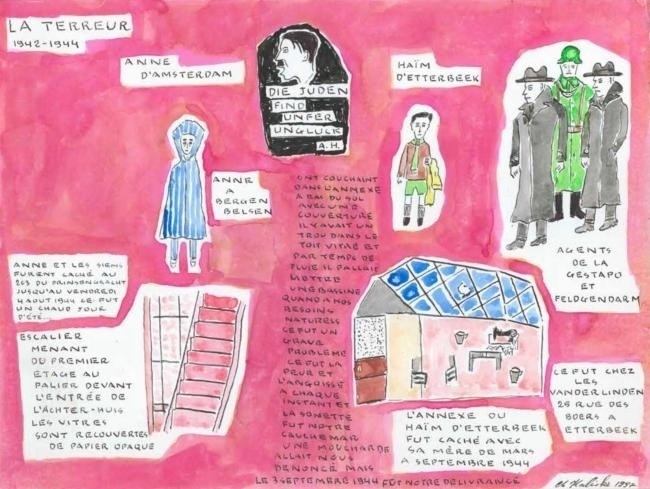 LA TERREUR
1942-1944
ANNE
D'AMSTERDAM
DIE JUDEN
FIND
UNFER
UNGLUCK
A.H.
HAÏM
D'ETTERBEEK
ANNE
A
BERGEN
BELSEN
AGENTS
DE LA
GESTAPO
ET
FELDGENDARM
ANNE ET LES SIENS
FURENT CACHÉ AU
263 DU PRINSENGRACHT
JUSQU'AU VENDREDI
4 AOUT 1944 CE FUT
UN CHAUD JOUR
D'ÉTÉ...
ESCALIER
MENANT
DU PREMIER
ETAGE AU
PALIER DEVANT
L'ENTRÉE DE
L'ACHTER-HUIS
LES VITRES
SONT RECOUVERTES
DE PAPIER OPAQUE
ONT COUCHAINT
DANS L'ANNEXE
A RAI DU SOL
AVEC UNE
COUVERTURE
IL Y AVAIT UN
TROU DANS LE
TOIT VITRÉ ET
PAR TEMPS DE
PLUIE IL FALLAIT
METTRE
UNE BASSINE
QUAND A NOS
BESOINS
NATURELS
CE FUT UN
GRAVE
PROBLEME
CE FUT LA
PEUR ET
L'ANGOISSE
A CHAQUE
INSTANT ET
LA SONETTE
FUT NOTRE
CAUCHEMAR
UNE MOUCHARDE
ALLAIT NOUS
DENONCÉ MAIS
LE 3 SEPTEMBRE 1944 FUT NOTRE DÉLIVRANCE
L'ANNEXE OU
HAÏM D'ETTERBEEK
FUT CACHÉ AVEC
SA MÈRE DE MARS
A SEPTEMBRE 1944
CE FUT CHEZ
LES
VANDERLINDEN
25 RUE DES
BOERS A
ETTERBEEK